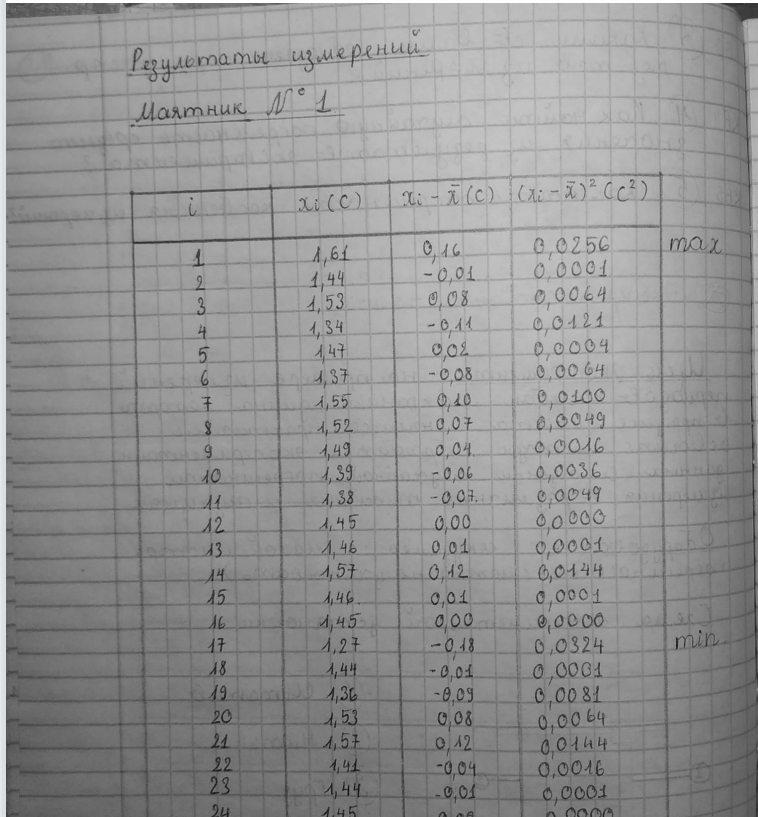 Результаты измерений
Маятник N° 1
i xi (c) xi - x̄ (c) (xi - x̄)² (c²)
1 1,61 0,16 0,0256 max
2 1,44 -0,01 0,0001
3 1,53 0,08 0,0064
4 1,34 -0,11 0,0121
5 1,47 0,02 0,0004
6 1,37 -0,08 0,0064
7 1,55 0,10 0,0100
8 1,52 0,07 0,0049
9 1,49 0,04 0,0016
10 1,39 -0,06 0,0036
11 1,38 -0,07 0,0049
12 1,45 0,00 0,0000
13 1,46 0,01 0,0001
14 1,57 0,12 0,0144
15 1,46 0,01 0,0001
16 1,45 0,00 0,0000
17 1,27 -0,18 0,0324 min
18 1,44 -0,01 0,0001
19 1,36 -0,09 0,0081
20 1,53 0,08 0,0064
21 1,57 0,12 0,0144
22 1,41 -0,04 0,0016
23 1,44 -0,01 0,0001
24 1,45